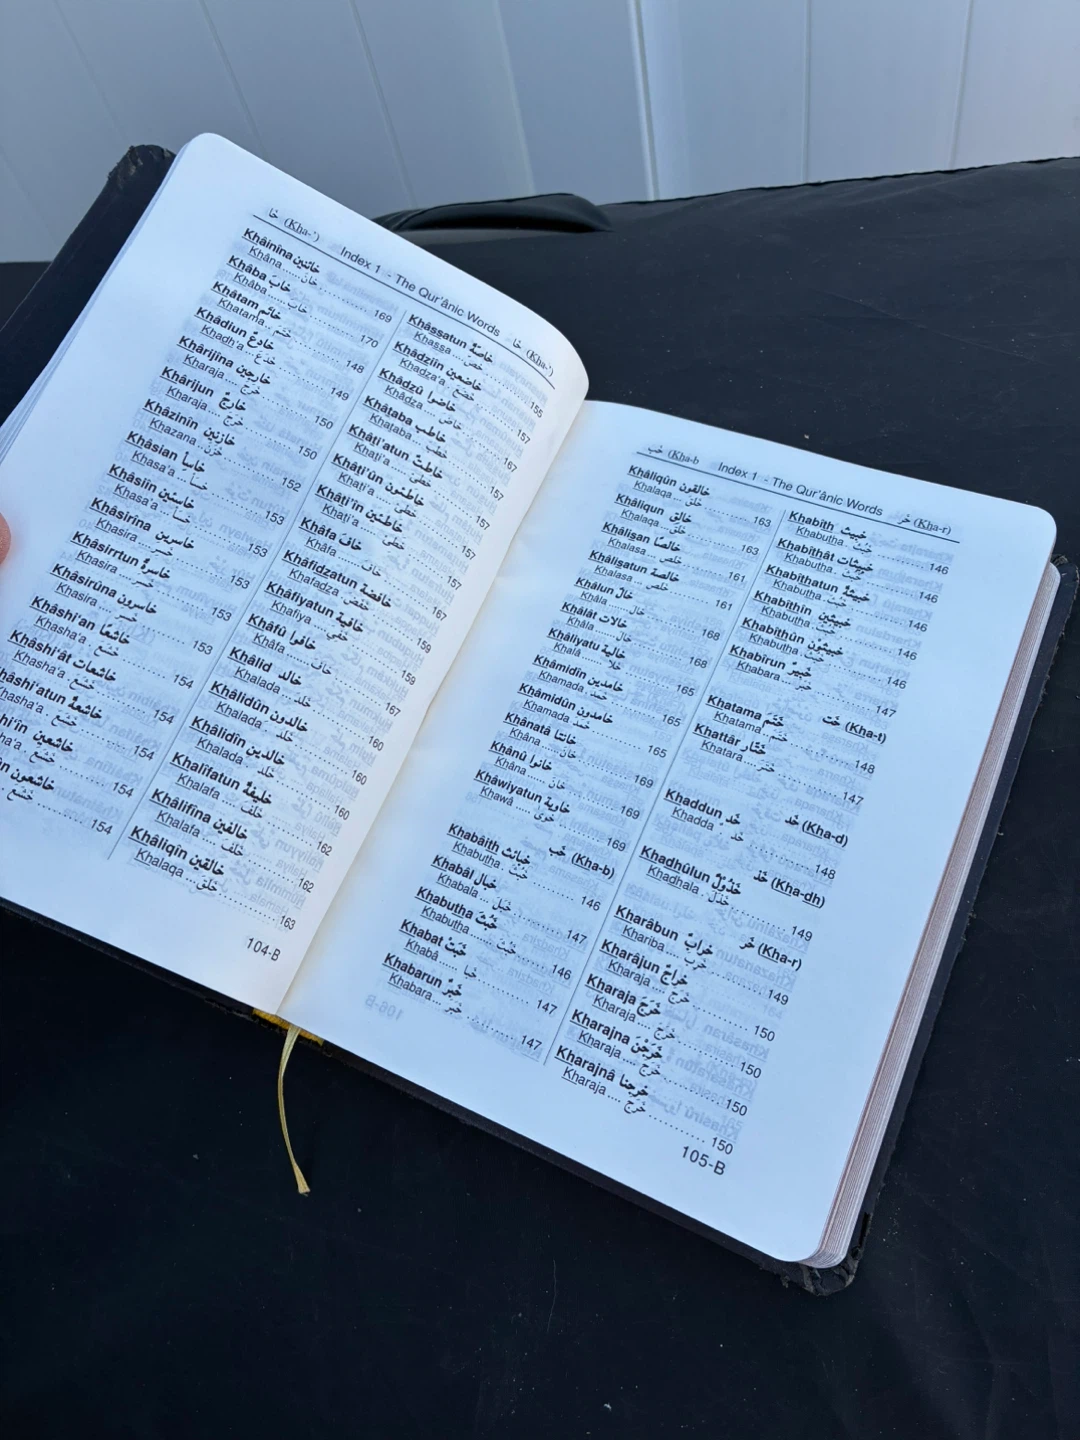 خَا (Kha-') Index 1 - The Qur'ânic Words خَا (Kha-')
Khâinîna خائنين
Khâna ..... خَانَ ..... 169
Khâba خَابَ
Khâba ..... خاب ..... 170
Khâtam خاتَم
Khatama ..... خَتَمَ ..... 148
Khâdiun خادِعٌ
Khadh'a ..... خَدَعَ ..... 149
Khârijîna خارِجين
Kharaja ..... خَرَجَ ..... 150
Khârijun خارِجٌ
Kharaja ..... خَرَجَ ..... 150
Khâzinîn خازنين
Khazana ..... خَزَنَ ..... 152
Khâsian خاسِأً
Khasa'a ..... خَسَأ ..... 153
Khâsiîn خاسئين
Khasa'a ..... خَسَأ ..... 153
Khâsirîna خاسرين
Khasira ..... خَسِر ..... 153
Khâsirrtun خاسرةٌ
Khasira ..... خَسِر ..... 153
Khâsirûna خاسرون
Khasira ..... خَسِر ..... 153
Khâshi'an خاشعًا
Khasha'a ..... خَشَع ..... 154
Khâshi'ât خاشعات
Khasha'a ..... خَشَع ..... 154
hâshi'atun خاشعةٌ
hasha'a ..... خَشَعَ ..... 154
hi'în خاشعين
ha'a ..... خَشَعَ ..... 154
ûn خاشعون
خَشَعَ ..... 154
Khâssatun خاصّةٌ
Khassa ..... خصّ ..... 155
Khâdziîn خاضعين
Khadza'a ..... خَضَعَ ..... 157
Khâdzû خاضوا
Khâdza ..... خاضَ ..... 167
Khâtaba خاطب
Khataba ..... خطب ..... 157
Khâti'atun خاطئةٌ
Khati'a ..... خطئ ..... 157
Khâti'ûn خاطئون
Khati'a ..... خطئ ..... 157
Khâti'în خاطئين
Khati'a ..... خطئ ..... 157
Khâfa خافَ
Khâfa ..... خافَ ..... 167
Khâfidzatun خافضة
Khafadza ..... خَفَضَ ..... 159
Khâfiyatun خافية
Khafiya ..... خفى ..... 159
Khâfû خافوا
Khâfa ..... خاف ..... 167
Khâlid خالد
Khalada ..... خلد ..... 160
Khâlidûn خالدون
Khalada ..... خلد ..... 160
Khâlidîn خالدين
Khalada ..... خلد ..... 160
Khalîfatun خليفةٌ
Khalafa ..... خَلَفَ ..... 162
Khâlifîna خالفين
Khalafa ..... خَلَفَ ..... 162
Khâliqîn خالقين
Khalaqa ..... خَلَقَ ..... 163
104-B
خب (Kha-b Index 1 - The Qur'ânic Words خَر (Kha-r)
Khâliqûn خالقون
Khalaqa ..... خلق ..... 163
Khâliqun خالق
Khalaqa ..... خلق ..... 163
Khâlisan خالصًا
Khalasa ..... خلص ..... 161
Khâlisatun خالصة
Khalasa ..... خلص ..... 161
Khâlun خال
Khâla ..... خال ..... 168
Khâlât خالات
Khâla ..... خال ..... 168
Khâliyatu خالية
Khalâ ..... خلا ..... 165
Khâmidîn خامدين
Khamada ..... خمد ..... 165
Khâmidûn خامدون
Khamada ..... خمد ..... 165
Khânatâ خانتا
Khâna ..... خان ..... 169
Khânû خانوا
Khâna ..... خان ..... 169
Khâwiyatun خاوية
Khawâ ..... خوى ..... 169
خب (Kha-b)
Khabâith خبائث
Khabutha ..... خَبُث ..... 146
Khabâl خبال
Khabala ..... خَبَل ..... 147
Khabutha خَبُثَ
Khabutha ..... خَبُث ..... 146
Khabat خَبَتْ
Khabâ ..... خبا ..... 147
Khabarun خَبَرٌ
Khabara ..... خَبَر ..... 147
Khabîth خبيث
Khabutha ..... خَبُث ..... 146
Khabîthât خبيثات
Khabutha ..... خَبُث ..... 146
Khabîthatun خبيثةٌ
Khabutha ..... خَبُث ..... 146
Khabîthîn خبيثين
Khabutha ..... خَبُث ..... 146
Khabîthûn خبيثون
Khabutha ..... خَبُث ..... 146
Khabîrun خبيرٌ
Khabara ..... خبر ..... 147
خَت (Kha-t)
Khatama خَتَمَ
Khatama ..... خَتَم ..... 148
Khattâr خَتّار
Khatara ..... خَتَرَ ..... 147
خَد (Kha-d)
Khaddun خَد
Khadda ..... خَدّ ..... 148
خَذ (Kha-dh)
Khadhûlun خَذُولٌ
Khadhala ..... خَذَلَ ..... 149
خَر (Kha-r)
Kharâbun خَرابٌ
Khariba ..... خَرِب ..... 149
Kharâjun خَراجٌ
Kharaja ..... خَرَجَ ..... 150
Kharaja خَرَجَ
Kharaja ..... خَرَجَ ..... 150
Kharajna خَرَجْنَ
Kharaja ..... خَرَجَ ..... 150
Kharajnâ خَرجنا
Kharaja ..... خَرَجَ ..... 150
105-B